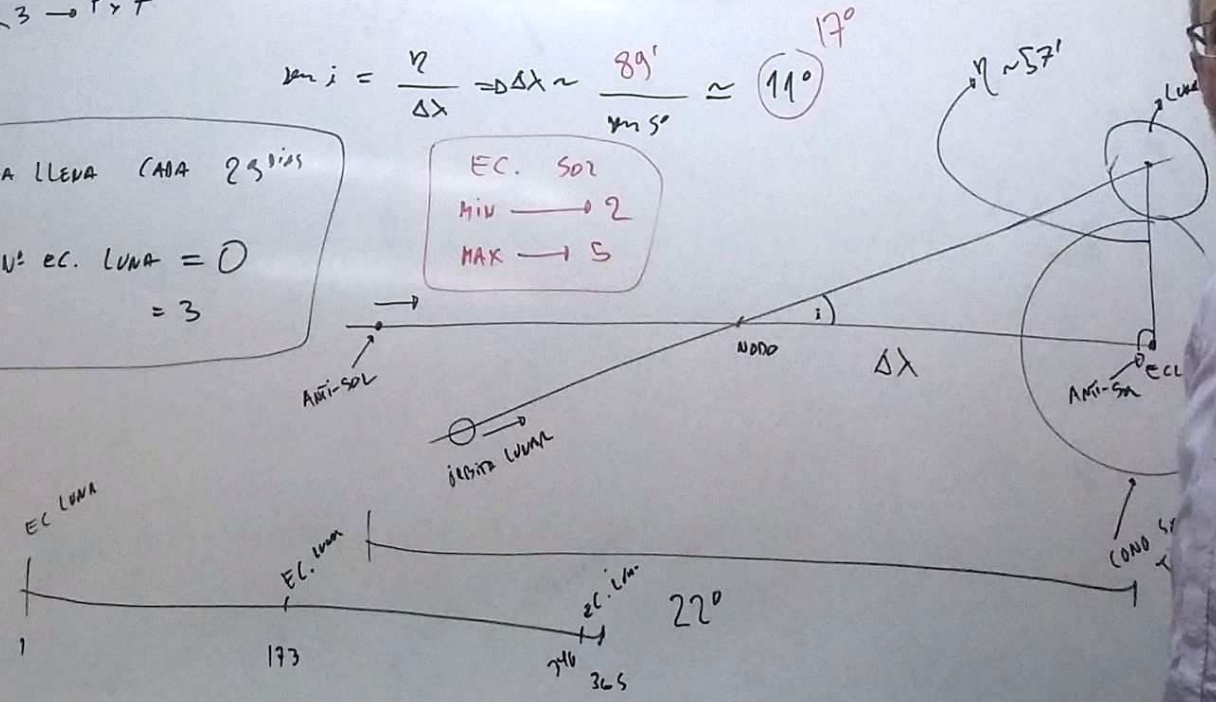 3 →
17°
sen i = η / Δλ ⇒ Δλ ~ 89' / sen 5° ≃ 11°
η ~ 57'
LUNA
A LLENA CADA 29 DÍAS
Nº EC. LUNA = 0
= 3
EC. SOL
MIN → 2
MAX → 5
ANTI-SOL
NODO
i
Δλ
ANTI-SOL
ECL
ÓRBITA LUNAR
CONO
EC LUNA
EC. LUNA
EC. LUN.
22°
1
173
346
365